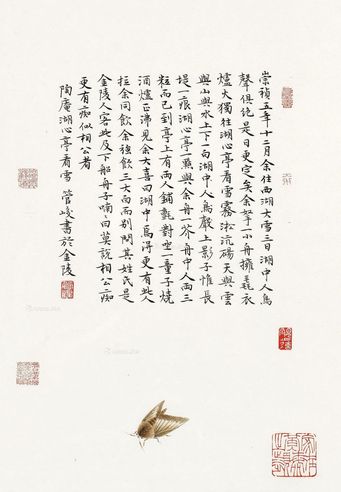 崇禎五年十二月余住西湖大雪三日湖中人鳥
聲俱絕是日更定矣余拏一小舟擁毳衣
爐火獨往湖心亭看雪霧淞沆碭天與雲
與山與水上下一白湖中人鳥上影子惟長
堤一痕湖心亭一點與余舟一芥舟中人兩三
粒而已到亭上有兩人鋪氈對坐一童子燒
酒爐正沸見余大喜曰湖中焉得更有此人
拉余同飲余強飲三大白而別問其姓氏是
金陵人客此及下船舟子喃曰莫說相公痴
更有痴似相公者
陶庵湖心亭看雪 管峻書於金陵